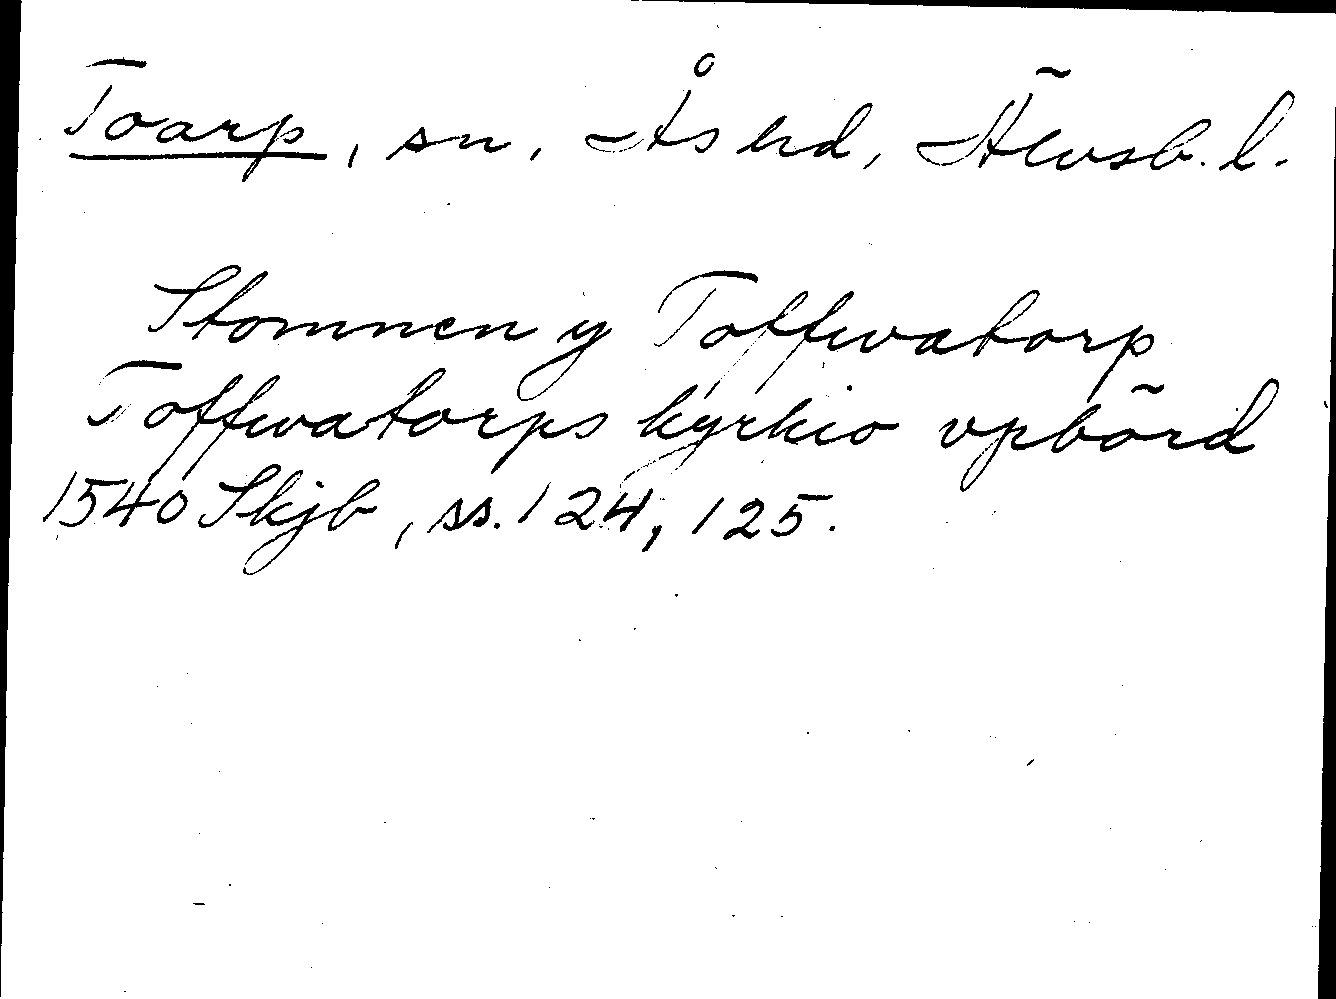 Toarp, sn, Ås hd, Älvsb. l.
Stommen y Toffwatorp
Toffwatorps kyrkio vpbörd
1540 Skjb, ss. 124, 125.